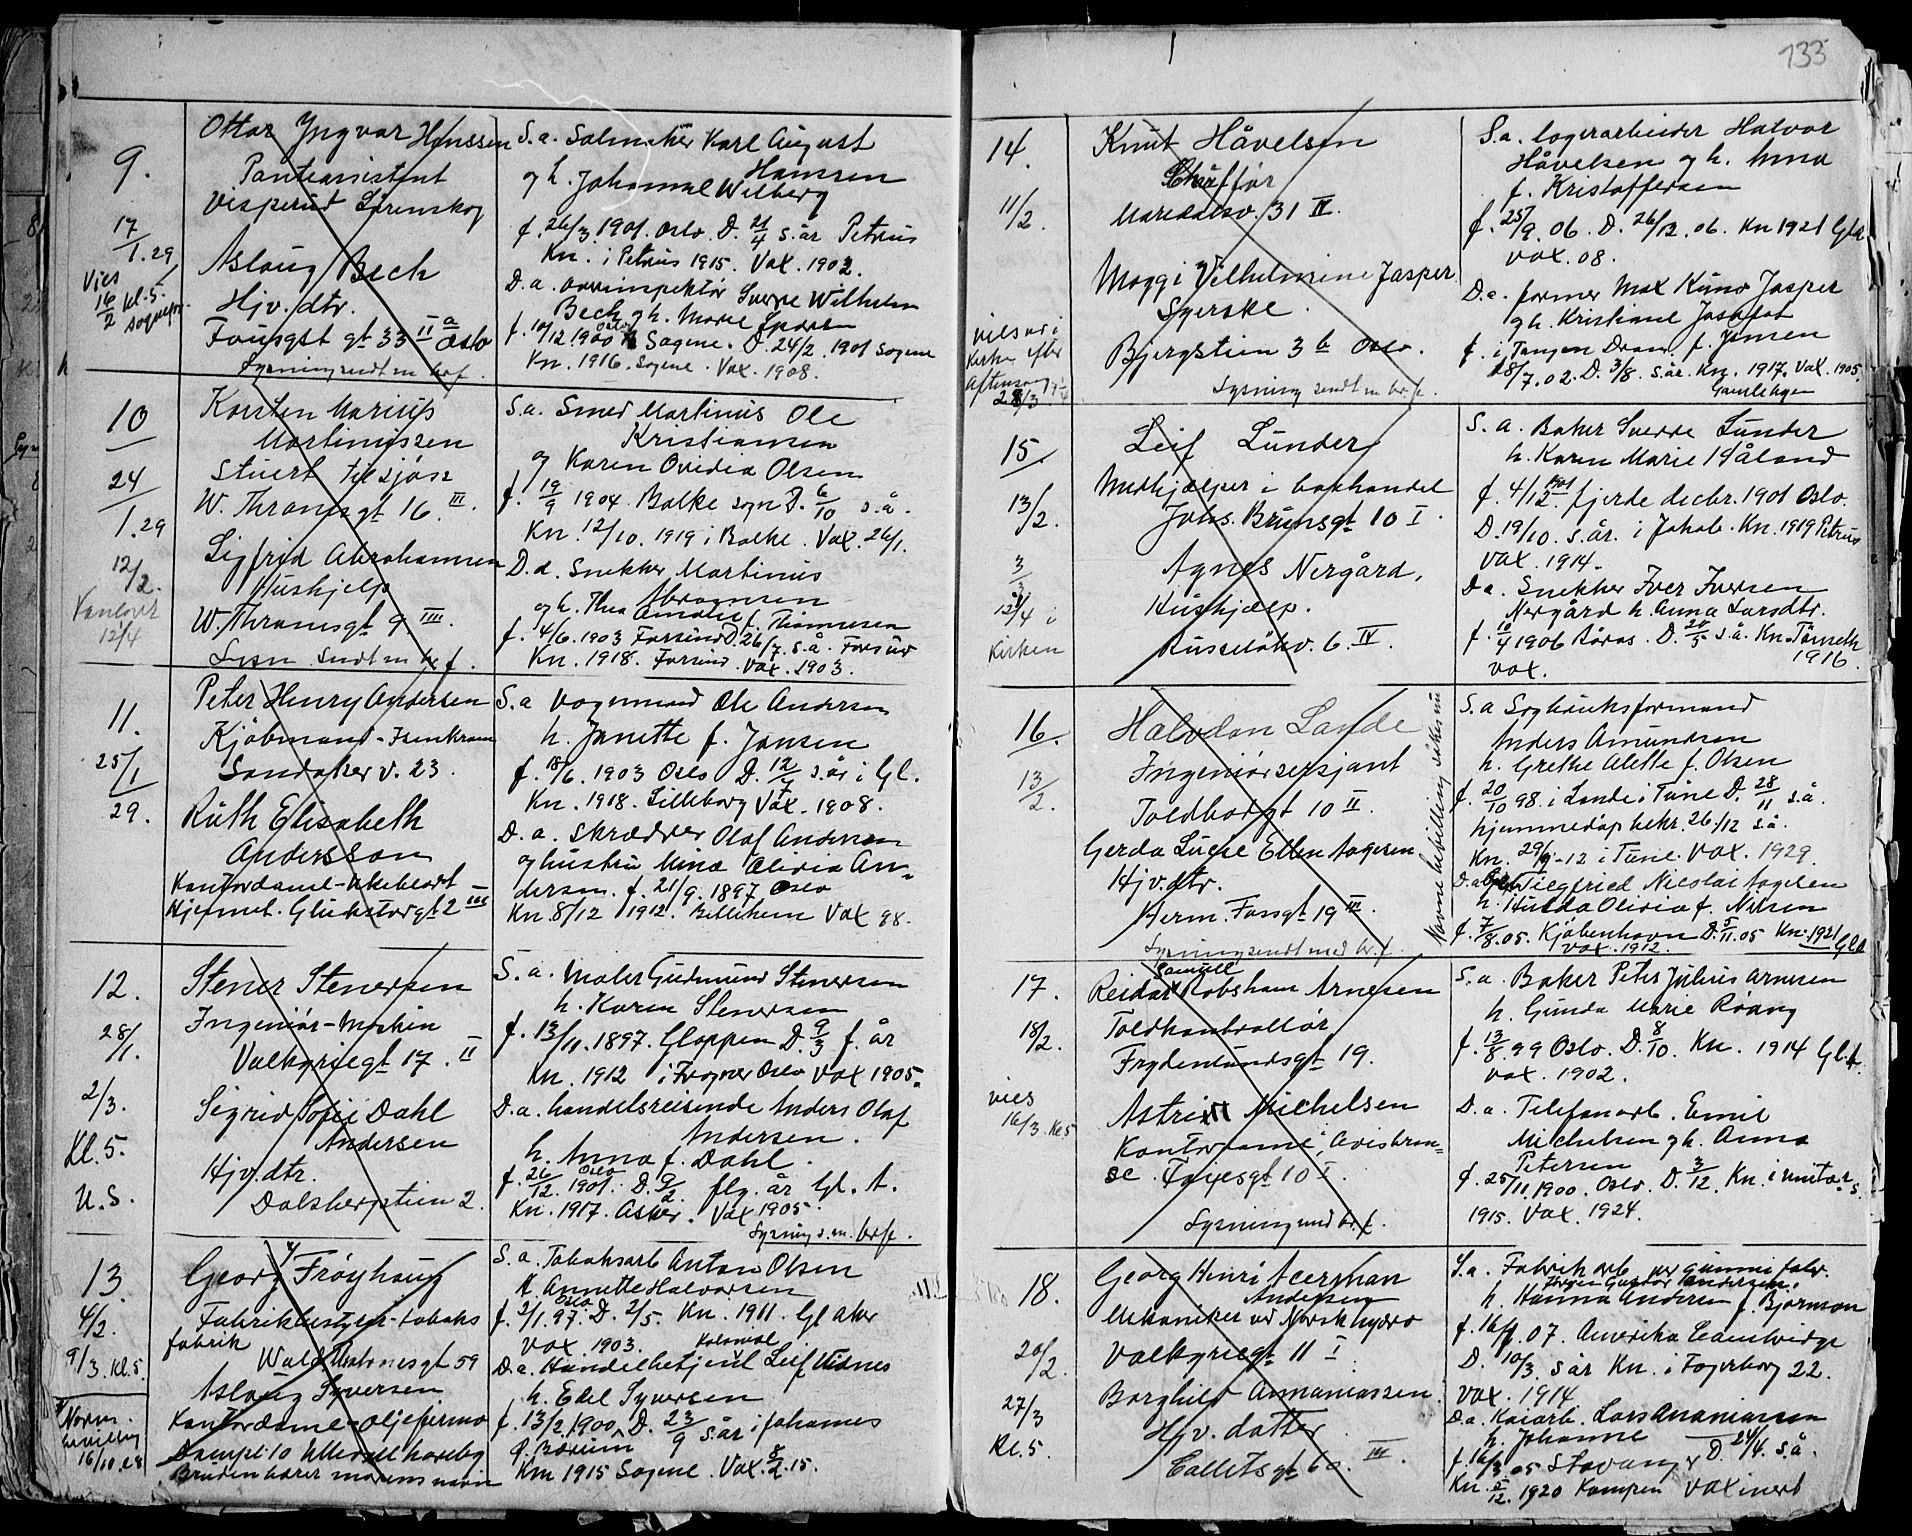 133
9.
17/1.29
Vies 16/2 Kl. 5.
Ottar Yngvar Hanssen
Panteassistent
Visperud Lørenskog
Aslaug Bech
Hjv. dtr.
Fougst gt 33 II a Oslo
Lysning sendt m br f.
S. a. Salmaker Karl August
Hanssen
og h. Johanne Wilberg
f. 26/3 1901. Oslo. D. 21/4 s. år Petrus
Kn. i Petrus 1915. Vax. 1902.
Bech og h. Marie
f. 10/12 1900 Oslo Sagene. D. 24/2 1901 Sagene
Kn. 1916. Sagene. Vax. 1908.
10
24/1.29
12/2.
12/4
Karsten Marius
Martiniussen
Stuert tilsjøss
W. Thranesgt 16. III.
Sigfrid Abrahamsen
Hushjelp
W. Thranesgt 9 III.
Lysn sendt m br f.
S. a. Smed Martinius Ole
Kristiansen
og Karen Ovidia Olsen
f. 19/9 1904. Balke sogn D. 6/10 s. å.
Kn. 12/10. 1919 i Balke. Vax. 26/1.
D. a. Snekker Martinius
og h. Thea Amalie f.
f. 4/6. 1903 D. 26/7. s. å.
Kn. 1918. Vax. 1903.
11.
25/1
29.
Peter Henry Andersen
Kjøbmand - Isenkram
Sandaker v. 23.
Ruth Elisabeth
Andersson
Kontordame - Ukebladet
Hjemmet. Glückstadgt 2 III
S. a Vognmand Ole Andersen
h. Janette f. Jansen
f. 18/6. 1903 Oslo D. 12/7 s. år i Gl.
Kn. 1918. Lilleborg Vax. 1908.
D. a. Skrædder Olaf Andersen
og hustru Mina Olivia An-
dersen. f. 21/9. 1897 Oslo
Kn 8/12 1912. Vax 98.
12.
28/1.
2/3.
Kl. 5.
U. S.
Stener Stenersen
Ingeniør - Maskin
Valkyriegt 17. II
Sigrid Sofie Dahl
Andersen
Hjv. dtr.
Dalsbergstien 2.
S. a. Maler Gudmund Stenersen
h. Karen Stenersen
f. 13/11. 1897. Gloppen D. 9/3 f. år
Kn. 1912 i Frogner Oslo Vax 1905.
D. a. handelsreisende Anders Olaf
Andersen.
h. Anna f. Dahl.
f. 26/12. 1901. Oslo D. 9/2. flg. år Gl. A.
Kn. 1917. Asker. Vax 1905.
Lysning s. m. br f.
13.
4/2.
9/3. Kl. 5.
Navn.
bevilling
16/10.28
Georg Frøyhaug
Fabrikbestyrer - tobaks
fabrik
Wald. Thranesgt 59
Aslaug Syversen
Kontordame - Oljefirma
Bruden bærer morens navn
S. a. Tobaksarb Anton Olsen
h. Annette Halvorsen
f. 2/1. 97. Oslo D. 2/5. Kn. 1911. Gl aker
Vax. 1903.
Kolonial
D. a. Handelbetjent Leif Vidnes
h. Edel Syversen
f. 13/2. 1900. D. 23/9 s. år i Johannes
Kn 1915 Sagene. Vax. 8/2. 15.
14.
11/2.
vies ur i
Kirken efter
Aftensang
28/3
Knut Håvelsen
Chauffør
Maridalsv. 31 IV.
Maggi Vilhelmine Jasper
Syerske.
Bjergstien 3 b Oslo.
Lysning sendt m br f.
S. a. lagerarbeider Halvor
Håvelsen og h. Anna
f. Kristoffersen
f. 25/9. 06. D. 26/12. 06. Kn 1921 Gla
vax. 08.
D. a. former Max Kuno Jasper
og h. Kristiane
f. i Tangen Dram. f. Jensen
28/7. 02. D. 3/8. s. år. Kn. 1917. Vax. 1905.
Gamlebyen
15.
13/2.
3/3
12/4 i
Kirken
Leif Lunder
Medhjælper i bokhandel
Johs. Brunsgt 10 I.
Agnes Nergård.
Hushjælp.
Russeløkv. 6. IV.
S. a. Baker Sverre Lunder
h. Karen Marie Håland
f. 4/12 1901 fjerde decbr. 1901 Oslo.
D. 19/10. s. år. i Jakob. Kn. 1919 Petrus
vax. 1914.
D a. Snekker Iver Iversen
Nergård h. Anna Larsdtr.
f. 10/4 1906 Røros. D. 20/5 s. å. Kn.
1916.
vax.
16.
13/2.
Halvdan Lande
Ingeniørsersjant
Toldbodgt 10 II.
Gerda Lucie Ellen Aagesen
Hjv. dtr.
Herm. Fossgt 19 III.
Lysning sendt med br. f.
Navnebevilling søkes nu
S. a Sagbruksformand
Anders Amundsen
h. Grethe Alette f. Olsen
f. 20/10 98. i Lande i Tune D. 28/11 s. å.
hjemmedåp bekr. 26/12 s å.
Kn. 29/9-12 i Tune. Vax. 1929.
Siegfried Nicolai Aagesen
h. Hulda Olivia f. Nilsen
f. 7/8. 05. Kjøbenhavn D. 5/11. 05 Kn. 1921 Gl a
Vax. 1912.
17.
18/2.
vies
16/3. Kl 5
Samuel
Reidar Robsham Arnesen
Toldkontrollør
Frydenlundsgt 19.
Astrid Michelsen
Kontordame, Avisbran-
se. Frijesgt 10 I.
Lysning med br. f.
S. a. Baker Peter Julius Arnesen
h. Gunda Marie Roang
f. 13/8. 99 Oslo. D. 8/10. Kn. 1914 Gl. A.
vax. 1902.
D. a. Telefonarb. Emil
Michelsen og h. Anna
Petersen
f. 25/11. 1900. Oslo. D. 3/12. Kn. i unitar s.
1915. Vax. 1924.
18.
20/2.
27/3
Kl. 5.
Georg Henri Aeerman
Andersen
Mekaniker ved Norsk hydro
Valkyriegt 11 I.
Borghild Ananiassen
Hjv. datter
Colletsgt 60. III.
S. a. Fabrik arb ver gummi fabr.
Jørgen Gustav Andersen.
h. Hanna Andersen f. Bjørman
f. 16/1. 07. Amerika Cambridge
D. 10/3 s år Kn. i Fagerborg 22.
Vax. 1914.
D. a. Kaiarb. Lars Ananiassen
h. Johanne
f. 16/3. 05 Stavanger D. 24/4. s. å.
Kn. 5/12. 1920 Kampen Vax inert